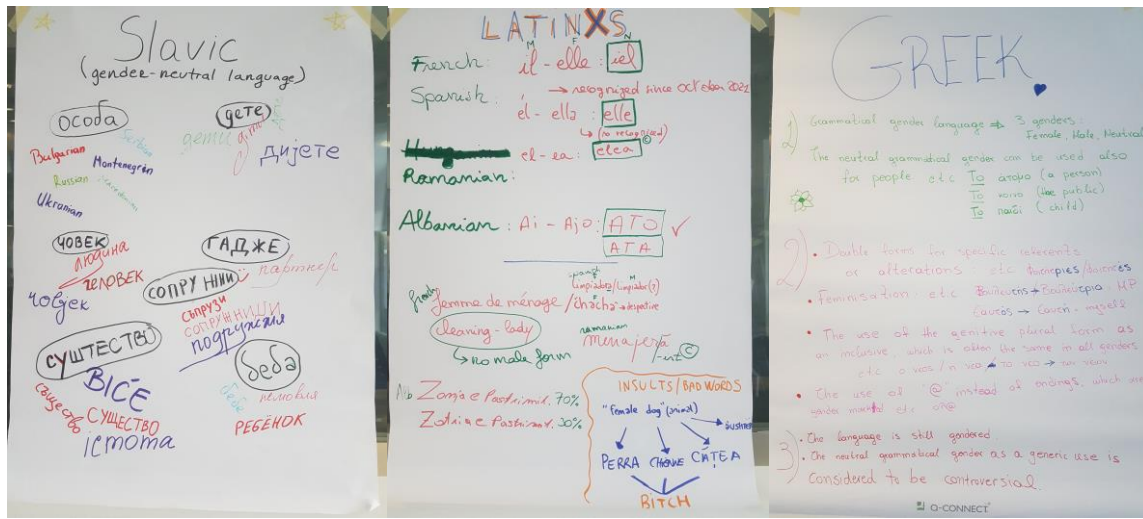 Slavic
(gender-neutral language)
ОСОБА
Serbian
Bulgarian
Montenegrin
Russian
Macedonian
Ukranian
дете
дијете
ЧОВЕК
людина
ЧЕЛОВЕК
човјек
ГАДЖЕ
партнер
СОПРУЖНИЦИ
СЪПРУЗИ
подружжя
СУШТЕСТВО
BIĆE
същество
СУЩЕСТВО
істота
беба
бебе
немовля
РЕБЁНОК
LATINXS
M F N
French: il - elle : iel
→ recognized since october 2022
Spanish: él - ella : elle
↳ (no recognized)
el - ea : elea ©
Romanian:
Albanian: Ai - Ajo: ATO ✓
ATA
spanish
limpiadora/limpiador(?)
french
femme de ménage / chacha → depective
cleaning-lady
↳ no male form
romanian
menajeră
Alb
70%
30%
INSULTS/BAD WORDS
"female dog" (animal)
PERRA CHIENNE CĂȚEA
BITCH
GREEK
1) Grammatical gender language → 3 genders:
Female, Male, Neutral
The neutral grammatical gender can be used also
for people etc Το άτομο (a person)
Το κοινό (the public)
Το παιδί (child)
2) • Double forms for specific referents
or alterations: etc
• Feminisation etc Βουλευτής → Βουλεύτρια: MP
Εαυτός → Εαυτή - myself
• The use of the genitive plural form as
an inclusive, which is often the same in all genders
• The use of '@' instead of endings, which are
gender marked etc
3) • The language is still gendered.
• The neutral grammatical gender as a generic use is
considered to be controversial.
Q-CONNECT